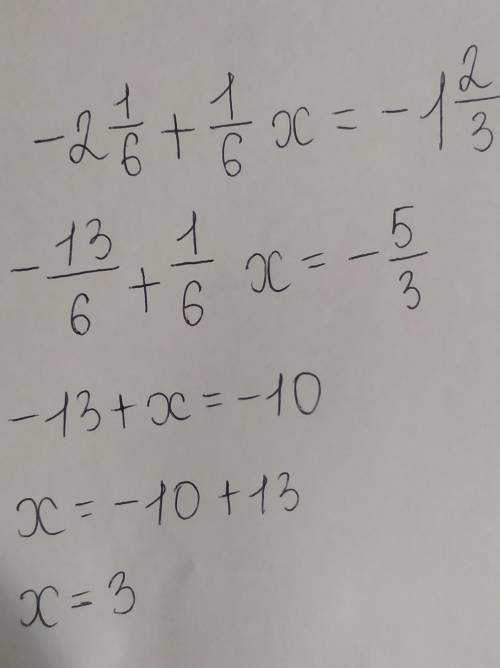 -2 1/6 + 1/6 x = -1 2/3
-13/6 + 1/6 x = -5/3
-13 + x = -10
x = -10 + 13
x = 3